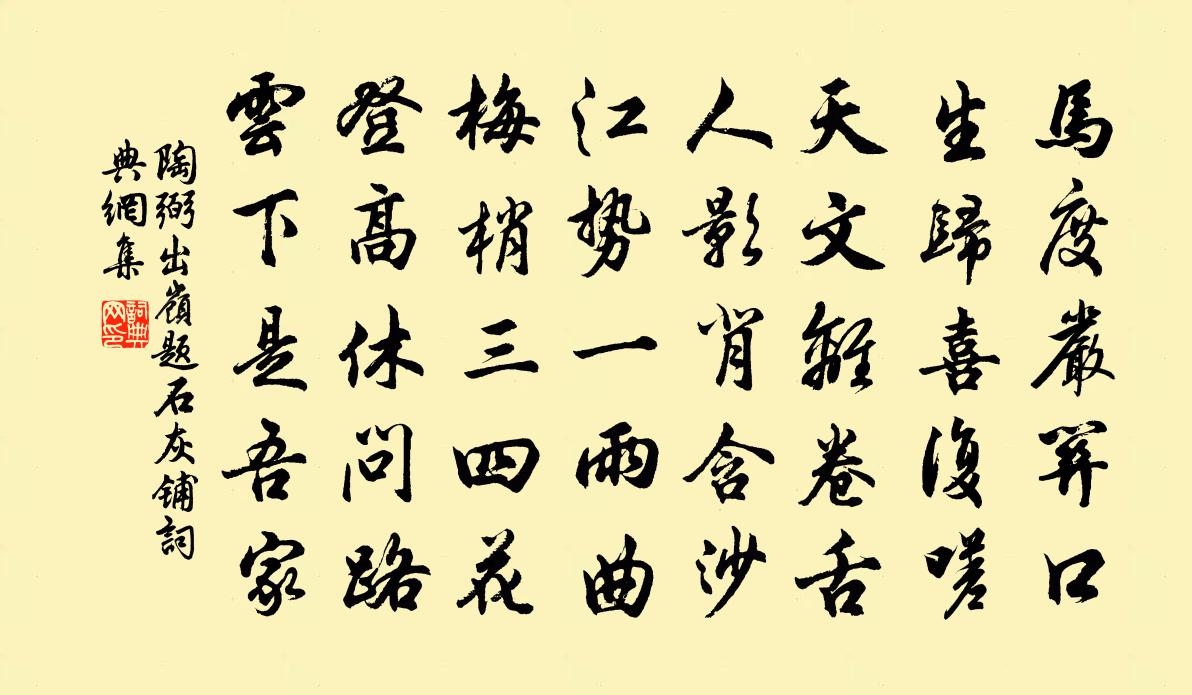 馬度嚴関口
生歸喜復嗟
天文離卷舌
人影背含沙
江势一兩曲
梅梢三四花
登高休問路
雲下是吾家
陶弼出嶺題石灰鋪詞
典網集
詞典网印